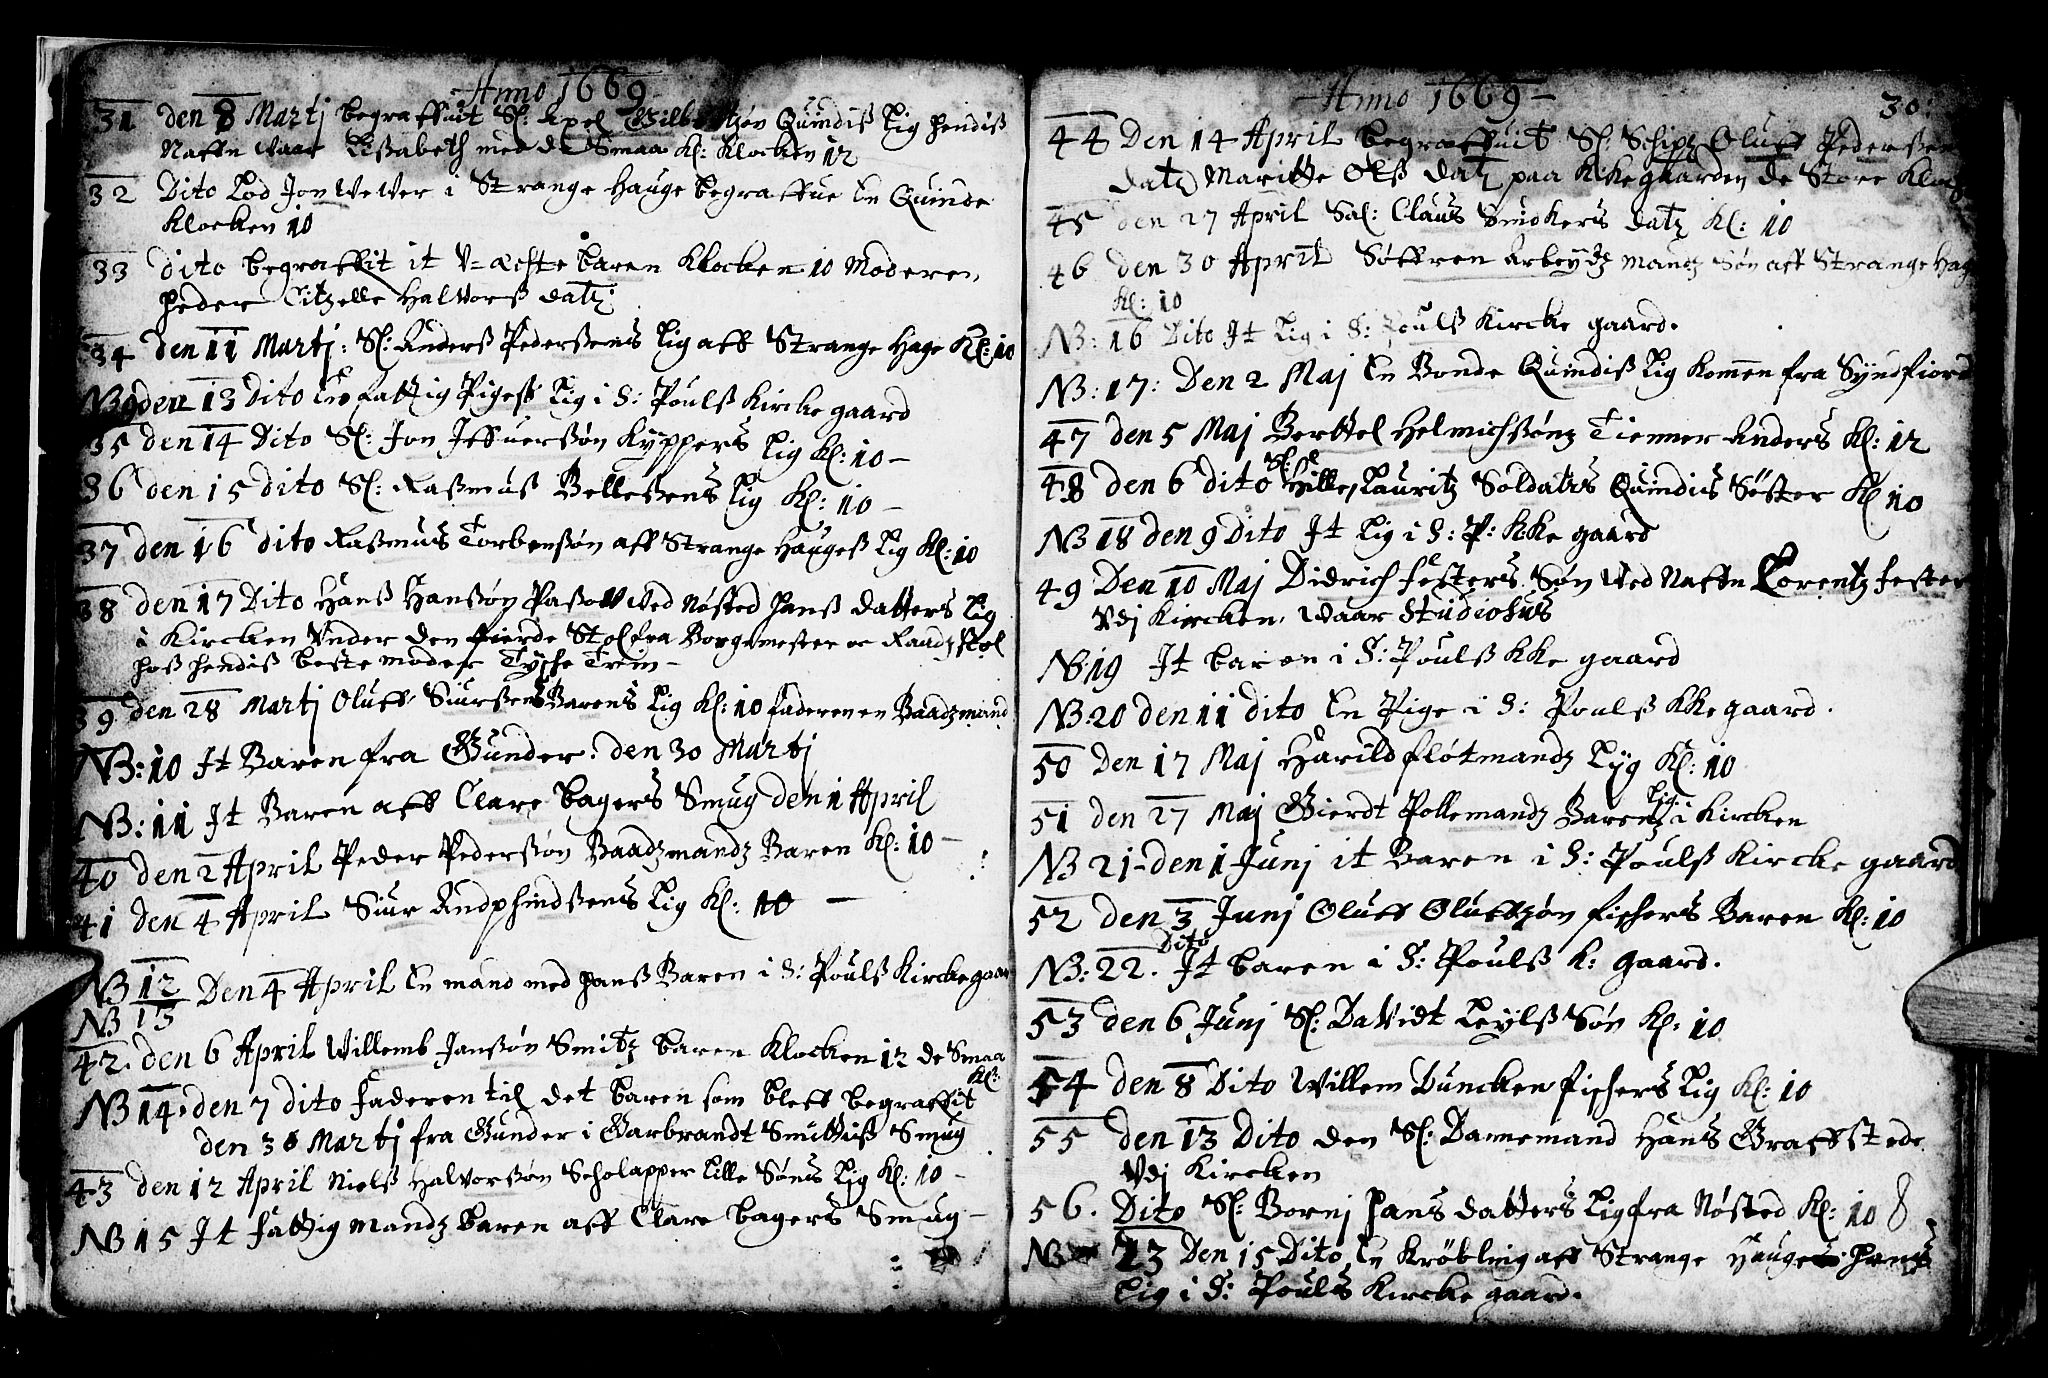 Anno 1669
31 den 8 Martj begraffuit Sl: Axel Qvindiß Lig hendiß
Naffn vaar Lißabeth med de Smaa Kl: Klocken 12
32 Dito Lod Jon Wever i Strange Hauge begraffue En Quinde
Klocken 10
33 dito begraffit it V=æchte baren Klocken 10 Moderen
heder Citzelle Halvorß datz
34 den 11 Martj: Sl: Anderß Pederßens Lig aff Strange Hage Kl: 10
NB 9 den 13 Dito En fattig Pigeß Lig i S: Poulß Kircke gaard
35 den 14 Dito Sl: Jon Jffuerßøn Kyppers Lig Kl: 10 –
36 den 15 dito Sl: Raßmuß Belleßens Lig Kl: 10 –
37 den 16 dito Raßmus Torbenßøn aff Strange Haugeß Lig Kl: 10
38 den 17 Dito Hanß Hanßøn Paßow Ved Nøsted hanß datters Lig
i Kircken Vnder den fierde Stol fra Borgemester oc Raadz stol
hoß hendiß beste moder Tyche Trim –
39 den 28 Martj Oluff Siurßens Barens Lig Kl: 10 faderen en Baadzmand
NB: 10 It Baren fra Gunder. den 30 Martj
NB: 11 It Baren aff Clare bagers Smug den 1 April
40 den 2 April Peder Pederßøn Baadzmandz Baren Kl: 10 –
41 den 4 April Siur Andphindßens Lig Kl: 10 –
NB 12 Den 4 April En mand med hanß Baren i S: Poulß Kircke gaar
NB 13
42. den 6 April Willemb Janßøn Smitz baren Klocken 12 de Smaa
Kl:
NB 14. den 7 dito faderen til det baren som bleff begraffit
den 30 Martj fra Gunder i Garbrandt Smuttiß Smug
43 den 12 April Nielß Halvorßøn Scholapper Lille Søns Lig Kl: 10 –
NB 15 It fattig mandz baren aff Clare bagers Smug –
Anno 1669 –
30:
44 Den 14 April begraffuit Sl: Schipz Oluff Pederßen
datz Maritte Olß datz paa Kikegaarden de Store Klock
45 den 27 April Sal: Claus Smokers datz Kl: 10
46 den 30 April Søffren Arbeydz mandz Søn aff Strange Hag
Kl: 10
NB: 16 Dito It Lig i S: Poulß Kircke gaard.
NB: 17: Den 2 Maj En Bonde Quindiß Lig Komen fra Syndfiord
47 den 5 Maj Berttel Helmichßønz Tienner Anders Kl: 12
48 den 6 dito Sl: Hille, Lauritz Soldaters Quindis Søster Kl 10
NB 18 den 9 Dito It Lig i S: P: KKe gaard
49 Den 10 Maj Didrich festers Søn Ved Naffn Lorentz fester
Vdj Kircken, Waar Studiosus
NB: 19 It baren i S: Poulß KKe gaard
NB: 20 den 11 dito En Pige i S: Poulß KKe gaard.
50 den 17 Maj Harild fløtmandz Lyg Kl: 10
51 den 27 Maj Gierdt Pollemandz Barenz Lig i Kircken
NB 21 – den 1 Junj it Baren i S: Poulß Kircke gaard
52 den 3 Junj Oluff Oluffzøn fischers Baren Kl: 10
NB: 22. Dito It baren i S: Poulß K: gaard.
53 den 6 Junj Sl: Davidt Leylß Søn Kl: 10
54 den 8 Dito Willem Duncken fischers Lig Kl: 10
55 den 13 Dito den Sl: Dannemand Hans Graffstede
Vdj Kircken
56. Dito Sl: Bornj hans datters Lig fra Nøsted Kl: 10
NB 23 Den 15 Dito En Krøbling aff Strange Hauge hans
Lig i S: Pouls Kircke gaard.